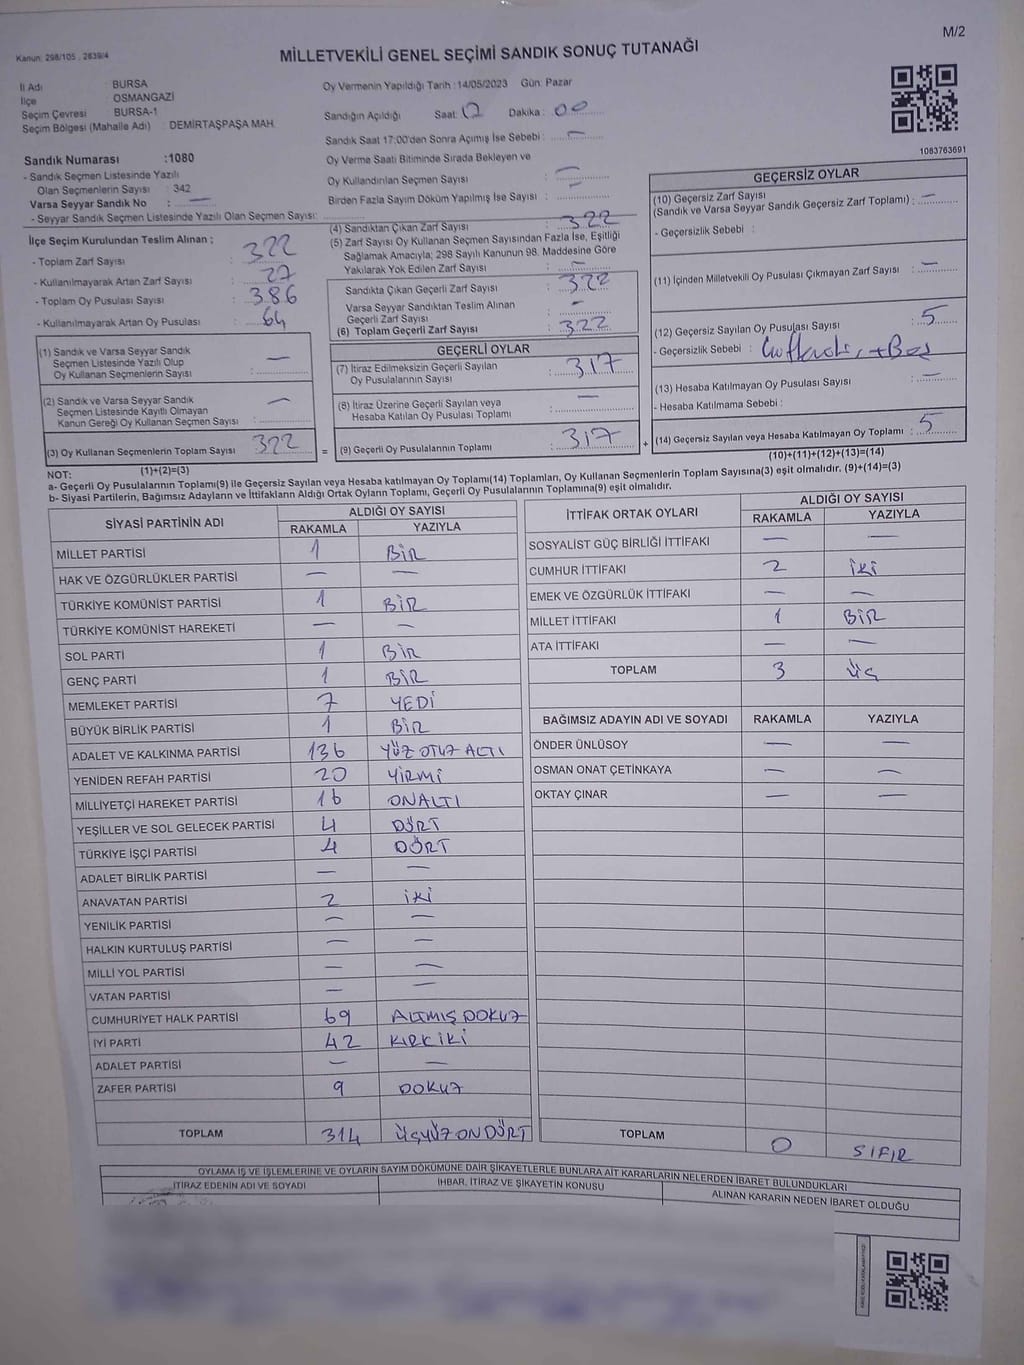 M/2
Kanun: 298/105 , 2839/4
MİLLETVEKİLİ GENEL SEÇİMİ SANDIK SONUÇ TUTANAĞI
İl Adı : BURSA
İlçe : OSMANGAZİ
Seçim Çevresi : BURSA-1
Seçim Bölgesi (Mahalle Adı) : DEMİRTAŞPAŞA MAH.
Sandık Numarası :1080
- Sandık Seçmen Listesinde Yazılı
Olan Seçmenlerin Sayısı : 342
Varsa Seyyar Sandık No : —
- Seyyar Sandık Seçmen Listesinde Yazılı Olan Seçmen Sayısı:
Oy Vermenin Yapıldığı Tarih :14/05/2023 Gün: Pazar
Sandığın Açıldığı Saat: Dakika : 00
Sandık Saat 17:00'den Sonra Açımış İse Sebebi : —
Oy Verme Saati Bitiminde Sırada Bekleyen ve
Oy Kullandırılan Seçmen Sayısı : —
Birden Fazla Sayım Döküm Yapılmış İse Sayısı : —
1083763691
İlçe Seçim Kurulundan Teslim Alınan ;
- Toplam Zarf Sayısı : 322
- Kullanılmayarak Artan Zarf Sayısı : 27
- Toplam Oy Pusulası Sayısı : 386
- Kullanılmayarak Artan Oy Pusulası : 64
(1) Sandık ve Varsa Seyyar Sandık
Seçmen Listesinde Yazılı Olup
Oy Kullanan Seçmenlerin Sayısı : —
(2) Sandık ve Varsa Seyyar Sandık
Seçmen Listesinde Kayıtlı Olmayan
Kanun Gereği Oy Kullanan Seçmen Sayısı : —
(3) Oy Kullanan Seçmenlerin Toplam Sayısı : 322
(4) Sandıktan Çıkan Zarf Sayısı : 322
(5) Zarf Sayısı Oy Kullanan Seçmen Sayısından Fazla İse, Eşitliği
Sağlamak Amacıyla; 298 Sayılı Kanunun 98. Maddesine Göre
Yakılarak Yok Edilen Zarf Sayısı : —
Sandıkta Çıkan Geçerli Zarf Sayısı : 322
Varsa Seyyar Sandıktan Teslim Alınan
Geçerli Zarf Sayısı : —
(6) Toplam Geçerli Zarf Sayısı : 322
GEÇERLİ OYLAR
(7) İtiraz Edilmeksizin Geçerli Sayılan
Oy Pusulalarının Sayısı : 317
(8) İtiraz Üzerine Geçerli Sayılan veya
Hesaba Katılan Oy Pusulası Toplamı : —
= (9) Geçerli Oy Pusulalarının Toplamı : 317
GEÇERSİZ OYLAR
(10) Geçersiz Zarf Sayısı
(Sandık ve Varsa Seyyar Sandık Geçersiz Zarf Toplamı) : —
- Geçersizlik Sebebi :
(11) İçinden Milletvekili Oy Pusulası Çıkmayan Zarf Sayısı : —
(12) Geçersiz Sayılan Oy Pusulası Sayısı : 5
- Geçersizlik Sebebi :
(13) Hesaba Katılmayan Oy Pusulası Sayısı : —
- Hesaba Katılmama Sebebi :
+ (14) Geçersiz Sayılan veya Hesaba Katılmayan Oy Toplamı : 5
NOT: (1)+(2)=(3)
(10)+(11)+(12)+(13)=(14)
a- Geçerli Oy Pusulalarının Toplamı(9) ile Geçersiz Sayılan veya Hesaba katılmayan Oy Toplamı(14) Toplamları, Oy Kullanan Seçmenlerin Toplam Sayısına(3) eşit olmalıdır. (9)+(14)=(3)
b- Siyasi Partilerin, Bağımsız Adayların ve İttifakların Aldığı Ortak Oyların Toplamı, Geçerli Oy Pusulalarının Toplamına(9) eşit olmalıdır.
SİYASİ PARTİNİN ADI ALDIĞI OY SAYISI
RAKAMLA YAZIYLA
MİLLET PARTİSİ 1 BİR
HAK VE ÖZGÜRLÜKLER PARTİSİ — —
TÜRKİYE KOMÜNİST PARTİSİ 1 BİR
TÜRKİYE KOMÜNİST HAREKETİ — —
SOL PARTİ 1 BİR
GENÇ PARTİ 1 BİR
MEMLEKET PARTİSİ 7 YEDİ
BÜYÜK BİRLİK PARTİSİ 1 BİR
ADALET VE KALKINMA PARTİSİ 136 YÜZ OTUZ ALTI
YENİDEN REFAH PARTİSİ 20 YİRMİ
MİLLİYETÇİ HAREKET PARTİSİ 16 ONALTI
YEŞİLLER VE SOL GELECEK PARTİSİ 4 DÖRT
TÜRKİYE İŞÇİ PARTİSİ 4 DÖRT
ADALET BİRLİK PARTİSİ — —
ANAVATAN PARTİSİ 2 İKİ
YENİLİK PARTİSİ — —
HALKIN KURTULUŞ PARTİSİ — —
MİLLİ YOL PARTİSİ — —
VATAN PARTİSİ — —
CUMHURİYET HALK PARTİSİ 69 ALTMIŞ DOKUZ
İYİ PARTİ 42 KIRK İKİ
ADALET PARTİSİ — —
ZAFER PARTİSİ 9 DOKUZ
TOPLAM 314 ÜÇYÜZ ON DÖRT
İTTİFAK ORTAK OYLARI ALDIĞI OY SAYISI
RAKAMLA YAZIYLA
SOSYALİST GÜÇ BİRLİĞİ İTTİFAKI — —
CUMHUR İTTİFAKI 2 İKİ
EMEK VE ÖZGÜRLÜK İTTİFAKI — —
MİLLET İTTİFAKI 1 BİR
ATA İTTİFAKI — —
TOPLAM 3 ÜÇ
BAĞIMSIZ ADAYIN ADI VE SOYADI RAKAMLA YAZIYLA
ÖNDER ÜNLÜSOY — —
OSMAN ONAT ÇETİNKAYA — —
OKTAY ÇINAR — —
TOPLAM 0 SIFIR
OYLAMA İŞ VE İŞLEMLERİNE VE OYLARIN SAYIM DÖKÜMÜNE DAİR ŞİKAYETLERLE BUNLARA AİT KARARLARIN NELERDEN İBARET BULUNDUKLARI
İTİRAZ EDENİN ADI VE SOYADI İHBAR, İTİRAZ VE ŞİKAYETİN KONUSU ALINAN KARARIN NEDEN İBARET OLDUĞU